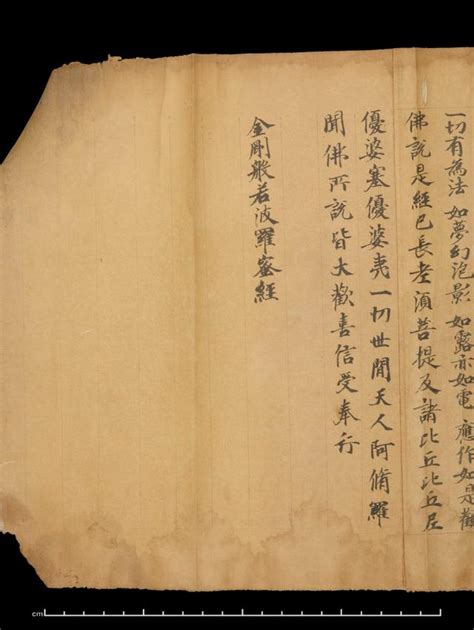 一切有為法 如夢幻泡影 如露亦如電 應作如是觀
佛說是經已長老須菩提及諸比丘比丘尼
優婆塞優婆夷一切世間天人阿脩羅
聞佛所說皆大歡喜信受奉行
金剛般若波羅蜜經
cm